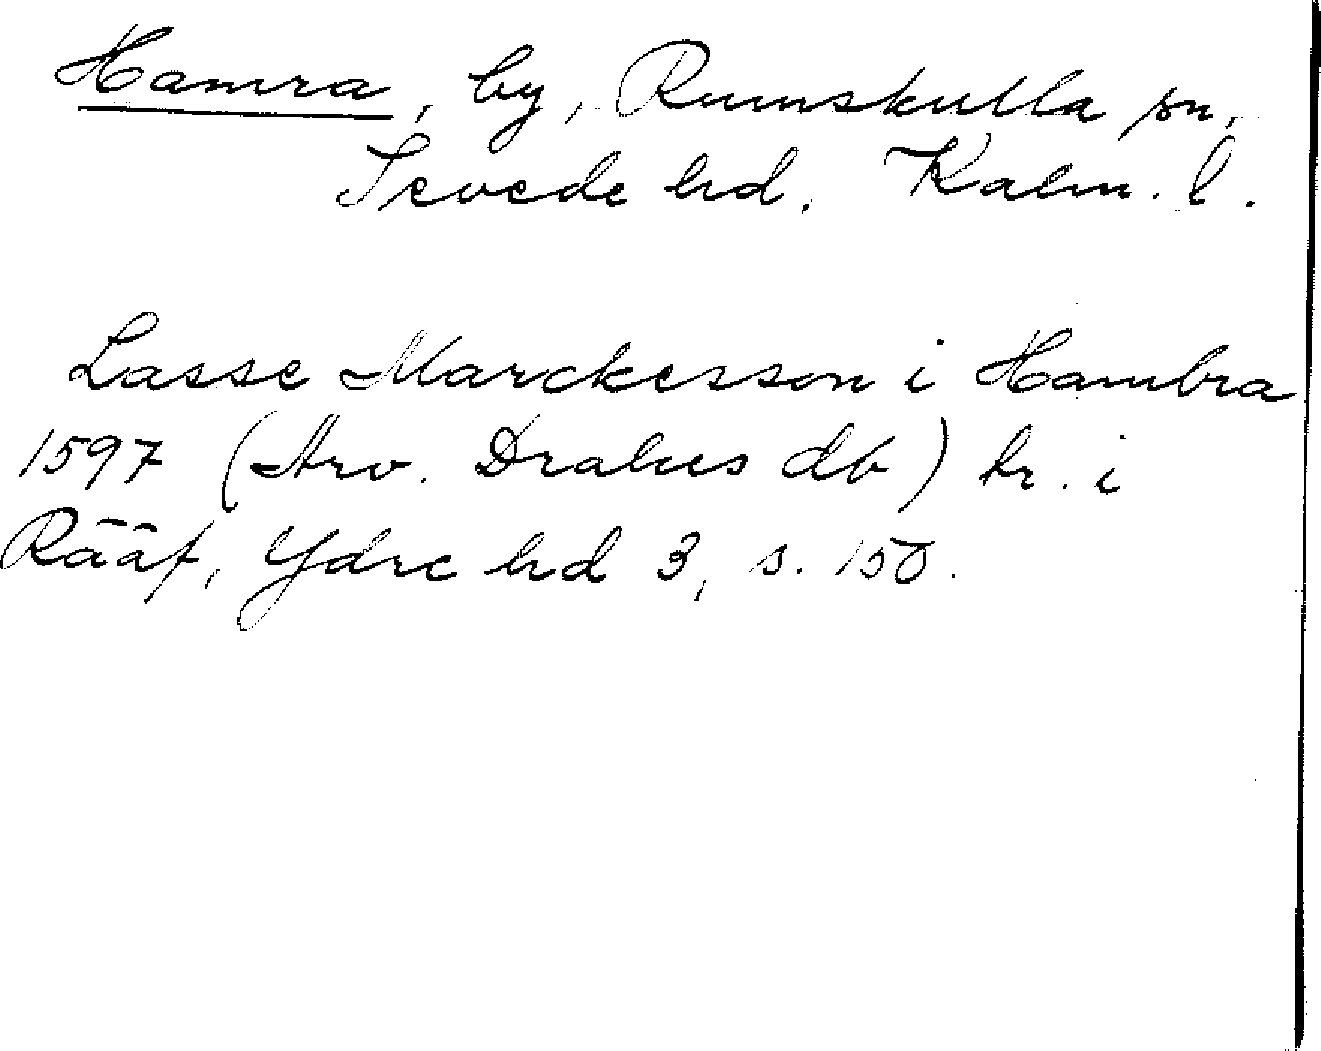 Hamra, by, Rumskulla sn,
Sevede hd. Kalm. l.
Lasse Marckesson i Hambra
1597 (Arv. Drakes db) tr. i
Rääf, Ydre hd 3, s. 150.